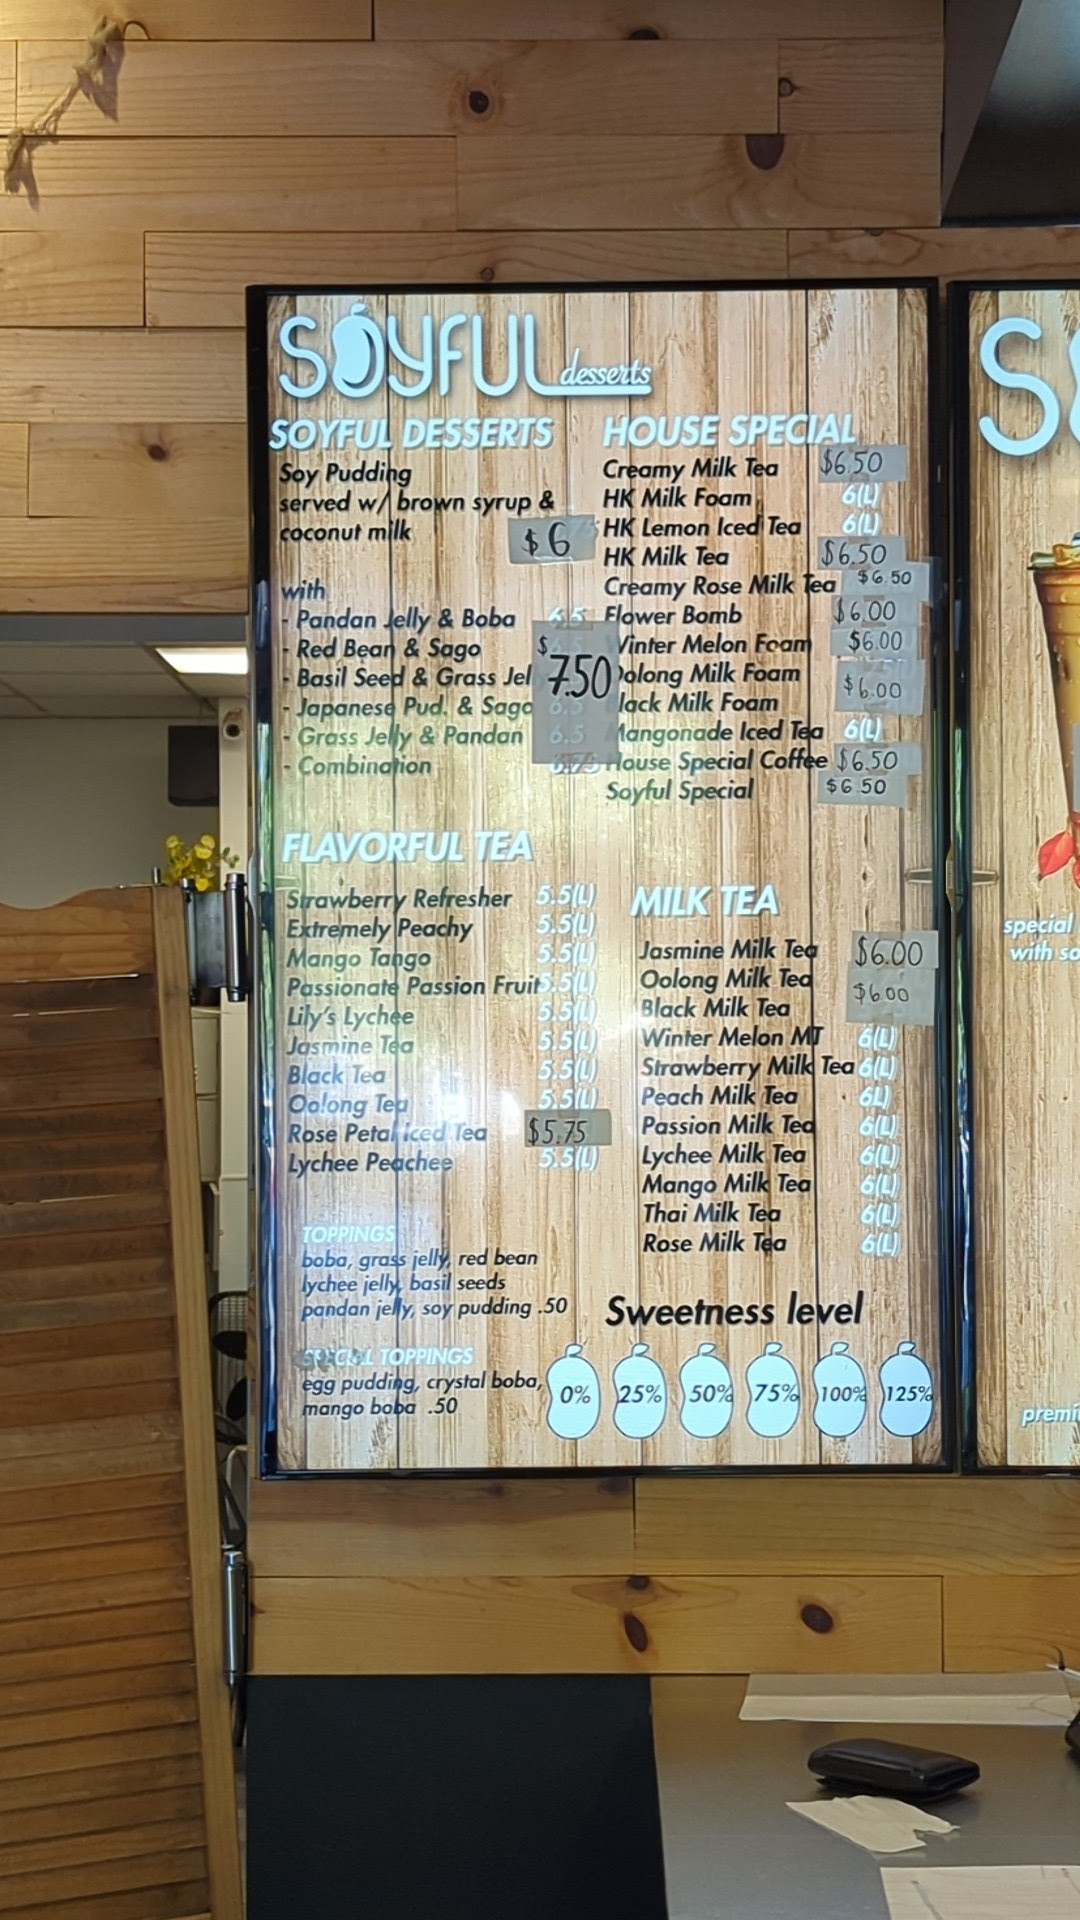 SOYFUL desserts
SOYFUL DESSERTS
Soy Pudding
served w/ brown syrup &
coconut milk
$6
with
- Pandan Jelly & Boba 6.5
- Red Bean & Sago $
- Basil Seed & Grass Jel 7.50
- Japanese Pud. & Sago 6.5
- Grass Jelly & Pandan 6.5
- Combination 6.75
FLAVORFUL TEA
Strawberry Refresher 5.5(L)
Extremely Peachy 5.5(L)
Mango Tango 5.5(L)
Passionate Passion Fruit 5.5(L)
Lily's Lychee 5.5(L)
Jasmine Tea 5.5(L)
Black Tea 5.5(L)
Oolong Tea 5.5(L)
Rose Petal Iced Tea $5.75
Lychee Peachee 5.5(L)
TOPPINGS
boba, grass jelly, red bean
lychee jelly, basil seeds
pandan jelly, soy pudding .50
SPECIAL TOPPINGS
egg pudding, crystal boba,
mango boba .50
HOUSE SPECIAL
Creamy Milk Tea $6.50
HK Milk Foam 6(L)
HK Lemon Iced Tea 6(L)
HK Milk Tea $6.50
Creamy Rose Milk Tea $6.50
Flower Bomb $6.00
Winter Melon Foam $6.00
Oolong Milk Foam $6.00
lack Milk Foam
Mangonade Iced Tea 6(L)
House Special Coffee $6.50
Soyful Special $6.50
MILK TEA
Jasmine Milk Tea $6.00
Oolong Milk Tea $6.00
Black Milk Tea
Winter Melon MT 6(L)
Strawberry Milk Tea 6(L)
Peach Milk Tea 6L)
Passion Milk Tea 6(L)
Lychee Milk Tea 6(L)
Mango Milk Tea 6(L)
Thai Milk Tea 6(L)
Rose Milk Tea 6(L)
Sweetness level
0% 25% 50% 75% 100% 125%
S
special
with so
premi